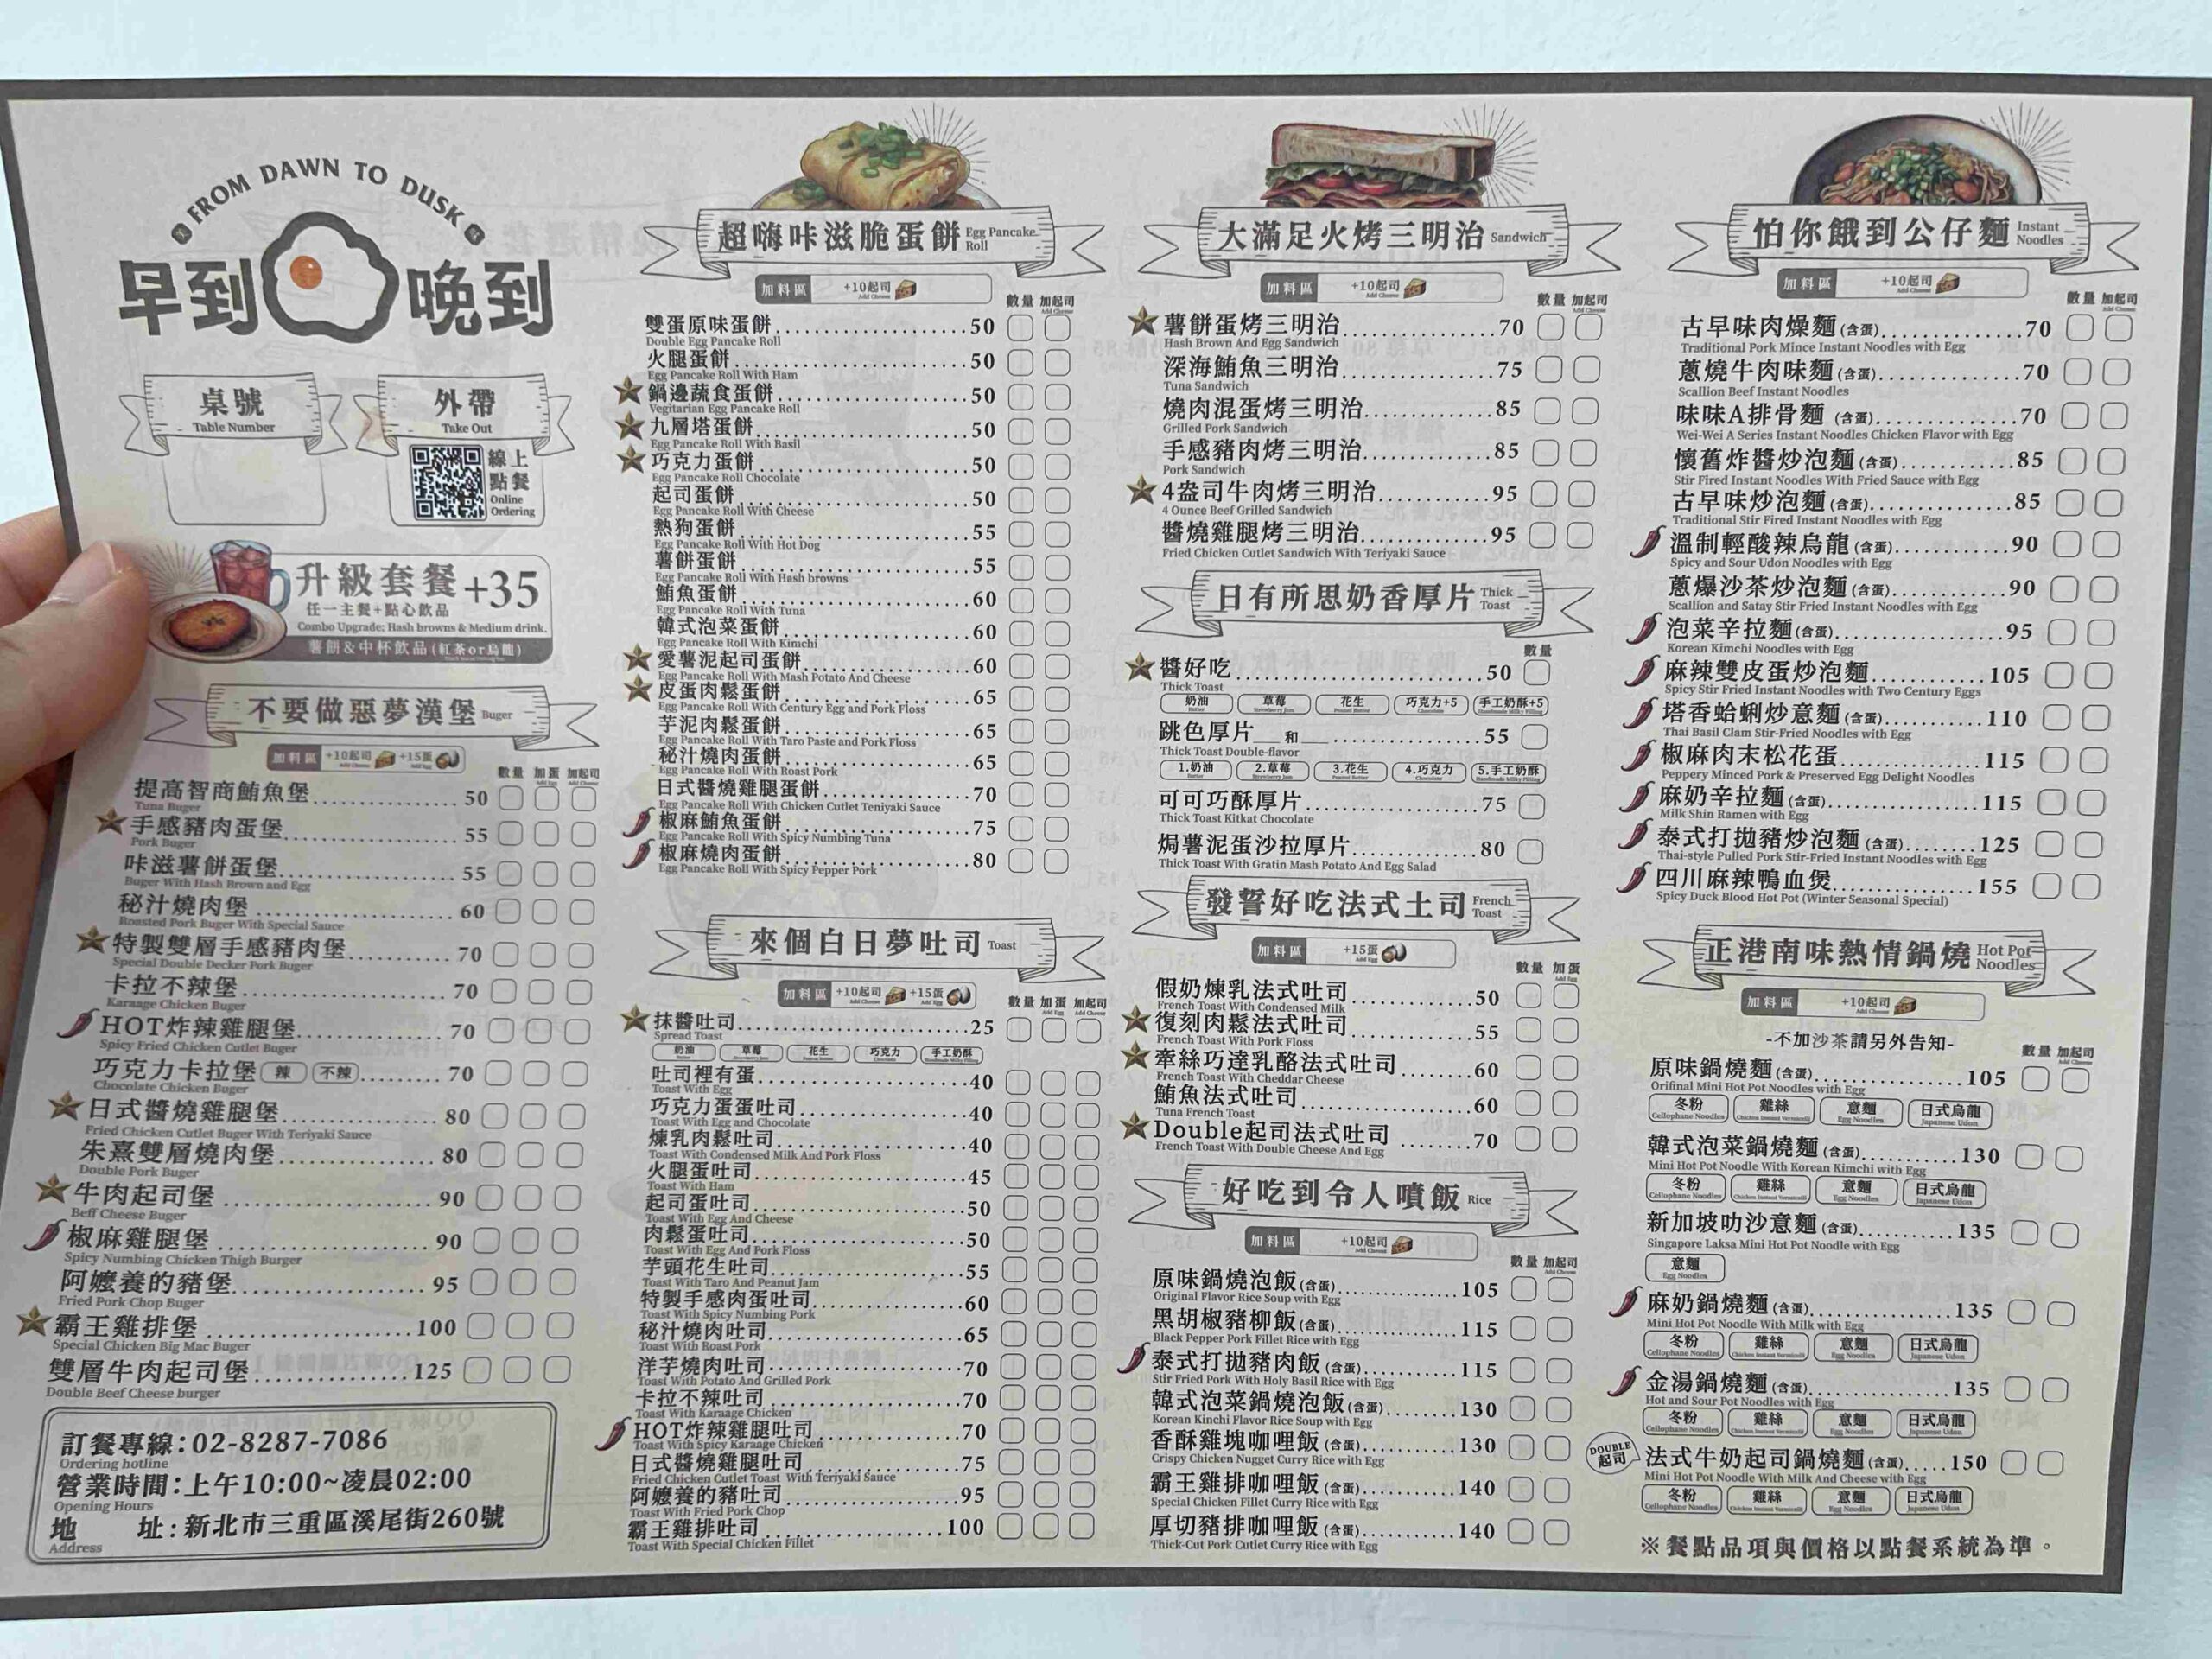 FROM DAWN TO DUSK
早到晚到
桌號
Table Number
外帶
Take Out
線上
點餐
Online
Ordering
升級套餐+35
任一主餐+點心飲品
Combo Upgrade; Hash browns & Medium drink.
薯餅&中杯飲品(紅茶or烏龍)
不要做惡夢漢堡 Buger
加料區 +10起司 +15蛋
Add Cheese Add Egg
數量 加蛋 加起司
Add Egg Add Cheese
提高智商鮪魚堡 50
Tuna Buger
手感豬肉蛋堡 55
Pork Buger
咔滋薯餅蛋堡 55
Buger With Hash Brown and Egg
秘汁燒肉堡 60
Roasted Pork Buger With Special Sauce
特製雙層手感豬肉堡 70
Special Double Decker Pork Buger
卡拉不辣堡 70
Karaage Chicken Buger
HOT炸辣雞腿堡 70
Spicy Fried Chicken Cutlet Buger
巧克力卡拉堡 辣 不辣 70
Chocolate Chicken Buger
日式醬燒雞腿堡 80
Fried Chicken Cutlet Buger With Teriyaki Sauce
朱熹雙層燒肉堡 80
Double Pork Buger
牛肉起司堡 90
Beff Cheese Buger
椒麻雞腿堡 90
Spicy Numbing Chicken Thigh Burger
阿嬤養的豬堡 95
Fried Pork Chop Buger
霸王雞排堡 100
Special Chicken Big Mac Buger
雙層牛肉起司堡 125
Double Beef Cheese burger
訂餐專線:02-8287-7086
Ordering hotline
營業時間:上午10:00~凌晨02:00
Opening Hours
地址:新北市三重區溪尾街260號
Address
超嗨咔滋脆蛋餅 Egg Pancake Roll
加料區 +10起司
Add Cheese
數量 加起司
Add Cheese
雙蛋原味蛋餅 50
Double Egg Pancake Roll
火腿蛋餅 50
Egg Pancake Roll With Ham
鍋邊蔬食蛋餅 50
Vegitarian Egg Pancake Roll
九層塔蛋餅 50
Egg Pancake Roll With Basil
巧克力蛋餅 50
Egg Pancake Roll Chocolate
起司蛋餅 50
Egg Pancake Roll With Cheese
熱狗蛋餅 55
Egg Pancake Roll With Hot Dog
薯餅蛋餅 55
Egg Pancake Roll With Hash browns
鮪魚蛋餅 60
Egg Pancake Roll With Tuna
韓式泡菜蛋餅 60
Egg Pancake Roll With Kimchi
愛薯泥起司蛋餅 60
Egg Pancake Roll With Mash Potato And Cheese
皮蛋肉鬆蛋餅 65
Egg Pancake Roll With Century Egg and Pork Floss
芋泥肉鬆蛋餅 65
Egg Pancake Roll With Taro Paste and Pork Floss
秘汁燒肉蛋餅 65
Egg Pancake Roll With Roast Pork
日式醬燒雞腿蛋餅 70
Egg Pancake Roll With Chicken Cutlet Teniyaki Sauce
椒麻鮪魚蛋餅 75
Egg Pancake Roll With Spicy Numbing Tuna
椒麻燒肉蛋餅 80
Egg Pancake Roll With Spicy Pepper Pork
來個白日夢吐司 Toast
加料區 +10起司 +15蛋
Add Cheese Add Egg
數量 加蛋 加起司
Add Egg Add Cheese
抹醬吐司 25
Spread Toast
奶油 草莓 花生 巧克力 手工奶酥
吐司裡有蛋 40
Toast With Egg
巧克力蛋蛋吐司 40
Toast With Egg and Chocolate
煉乳肉鬆吐司 40
Toast With Condensed Milk And Pork Floss
火腿蛋吐司 45
Toast With Ham
起司蛋吐司 50
Toast With Egg And Cheese
肉鬆蛋吐司 50
Toast With Egg And Pork Floss
芋頭花生吐司 55
Toast With Taro And Peanut Jam
特製手感肉蛋吐司 60
Toast With Spicy Numbing Pork
秘汁燒肉吐司 65
Toast With Roast Pork
洋芋燒肉吐司 70
Toast With Potato And Grilled Pork
卡拉不辣吐司 70
Toast With Karaage Chicken
HOT炸辣雞腿吐司 70
Toast With Spicy Karaage Chicken
日式醬燒雞腿吐司 75
Fried Chicken Cutlet Toast With Teriyaki Sauce
阿嬤養的豬吐司 95
Toast With Fried Pork Chop
霸王雞排吐司 100
Toast With Special Chicken Fillet
大滿足火烤三明治 Sandwich
加料區 +10起司
Add Cheese
數量 加起司
Add Cheese
薯餅蛋烤三明治 70
Hash Brown And Egg Sandwich
深海鮪魚三明治 75
Tuna Sandwich
燒肉混蛋烤三明治 85
Grilled Pork Sandwich
手感豬肉烤三明治 85
Pork Sandwich
4盎司牛肉烤三明治 95
4 Ounce Beef Grilled Sandwich
醬燒雞腿烤三明治 95
Fried Chicken Cutlet Sandwich With Teriyaki Sauce
日有所思奶香厚片 Thick Toast
數量
醬好吃 50
Thick Toast
奶油 草莓 花生 巧克力+5 手工奶酥+5
跳色厚片__和__ 55
Thick Toast Double-flavor
1.奶油 2.草莓 3.花生 4.巧克力 5.手工奶酥
可可巧酥厚片 75
Thick Toast Kitkat Chocolate
焗薯泥蛋沙拉厚片 80
Thick Toast With Gratin Mash Potato And Egg Salad
發誓好吃法式土司 French Toast
加料區 +15蛋
Add Egg
數量 加蛋
Add Egg
假奶煉乳法式吐司 50
French Toast With Condensed Milk
復刻肉鬆法式吐司 55
French Toast With Pork Floss
牽絲巧達乳酪法式吐司 60
French Toast With Cheddar Cheese
鮪魚法式吐司 60
Tuna French Toast
Double起司法式吐司 70
French Toast With Double Cheese And Egg
好吃到令人噴飯 Rice
加料區 +10起司
Add Cheese
數量 加起司
Add Cheese
原味鍋燒泡飯(含蛋) 105
Original Flavor Rice Soup with Egg
黑胡椒豬柳飯(含蛋) 115
Black Pepper Pork Fillet Rice with Egg
泰式打拋豬肉飯(含蛋) 115
Stir Fried Pork With Holy Basil Rice with Egg
韓式泡菜鍋燒泡飯(含蛋) 130
Korean Kinchi Flavor Rice Soup with Egg
香酥雞塊咖哩飯(含蛋) 130
Crispy Chicken Nugget Curry Rice with Egg
霸王雞排咖哩飯(含蛋) 140
Special Chicken Fillet Curry Rice with Egg
厚切豬排咖哩飯(含蛋) 140
Thick-Cut Pork Cutlet Curry Rice with Egg
怕你餓到公仔麵 Instant Noodles
加料區 +10起司
Add Cheese
數量 加起司
Add Cheese
古早味肉燥麵(含蛋) 70
Traditional Pork Mince Instant Noodles with Egg
蔥燒牛肉味麵(含蛋) 70
Scallion Beef Instant Noodles
味味A排骨麵(含蛋) 70
Wei-Wei A Series Instant Noodles Chicken Flavor with Egg
懷舊炸醬炒泡麵(含蛋) 85
Stir Fired Instant Noodles With Fried Sauce with Egg
古早味炒泡麵(含蛋) 85
Traditional Stir Fired Instant Noodles with Egg
溫制輕酸辣烏龍(含蛋) 90
Spicy and Sour Udon Noodles with Egg
蔥爆沙茶炒泡麵(含蛋) 90
Scallion and Satay Stir Fried Instant Noodles with Egg
泡菜辛拉麵(含蛋) 95
Korean Kimchi Noodles with Egg
麻辣雙皮蛋炒泡麵 105
Spicy Stir Fried Instant Noodles with Two Century Eggs
塔香蛤蜊炒意麵(含蛋) 110
Thai Basil Clam Stir-Fried Noodles with Egg
椒麻肉末松花蛋 115
Peppery Minced Pork & Preserved Egg Delight Noodles
麻奶辛拉麵(含蛋) 115
Milk Shin Ramen with Egg
泰式打拋豬炒泡麵(含蛋) 125
Thai-style Pulled Pork Stir-Fried Instant Noodles with Egg
四川麻辣鴨血煲 155
Spicy Duck Blood Hot Pot (Winter Seasonal Special)
正港南味熱情鍋燒 Hot Pot Noodles
加料區 +10起司
Add Cheese
-不加沙茶請另外告知-
數量 加起司
Add Cheese
原味鍋燒麵(含蛋) 105
Orifinal Mini Hot Pot Noodles with Egg
冬粉 雞絲 意麵 日式烏龍
Cellophane Noodles Chicken Instant Vermicelli Egg Noodles Japanese Udon
韓式泡菜鍋燒麵(含蛋) 130
Mini Hot Pot Noodle With Korean Kimchi with Egg
冬粉 雞絲 意麵 日式烏龍
Cellophane Noodles Chicken Instant Vermicelli Egg Noodles Japanese Udon
新加坡叻沙意麵(含蛋) 135
Singapore Laksa Mini Hot Pot Noodle with Egg
意麵
Egg Noodles
麻奶鍋燒麵(含蛋) 135
Mini Hot Pot Noodle With Milk with Egg
冬粉 雞絲 意麵 日式烏龍
Cellophane Noodles Chicken Instant Vermicelli Egg Noodles Japanese Udon
金湯鍋燒麵(含蛋) 135
Hot and Sour Pot Noodles with Egg
冬粉 雞絲 意麵 日式烏龍
Cellophane Noodles Chicken Instant Vermicelli Egg Noodles Japanese Udon
DOUBLE起司
法式牛奶起司鍋燒麵(含蛋) 150
Mini Hot Pot Noodle With Milk And Cheese with Egg
冬粉 雞絲 意麵 日式烏龍
Cellophane Noodles Chicken Instant Vermicelli Egg Noodles Japanese Udon
※餐點品項與價格以點餐系統為準。